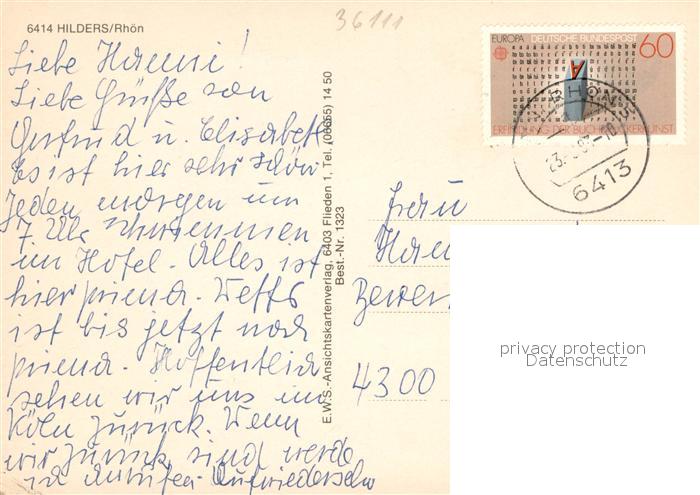 6414 HILDERS/Rhön
36111
Liebe Hanni!
Liebe Grüße von
Gertrud u. Elisabeth
Es ist hier sehr schön
Jeden morgen um
7 Uhr schwimmen
im Hotel. Alles ist
hier prima.
ist bis jetzt noch
prima. Hoffentlich
sehen wir uns in
Köln zurück. Wenn
wir zurück sind werde
ich anrufen Aufwiedersehn
E.W.S.-Ansichtskartenverlag, 6403 Flieden 1, Tel. (06655) 14 50
Best.-Nr. 1323
EUROPA DEUTSCHE BUNDESPOST 60
ERFINDUNG DER BUCHDRUCKERKUNST
6413
Frau
4300
privacy protection
Datenschutz